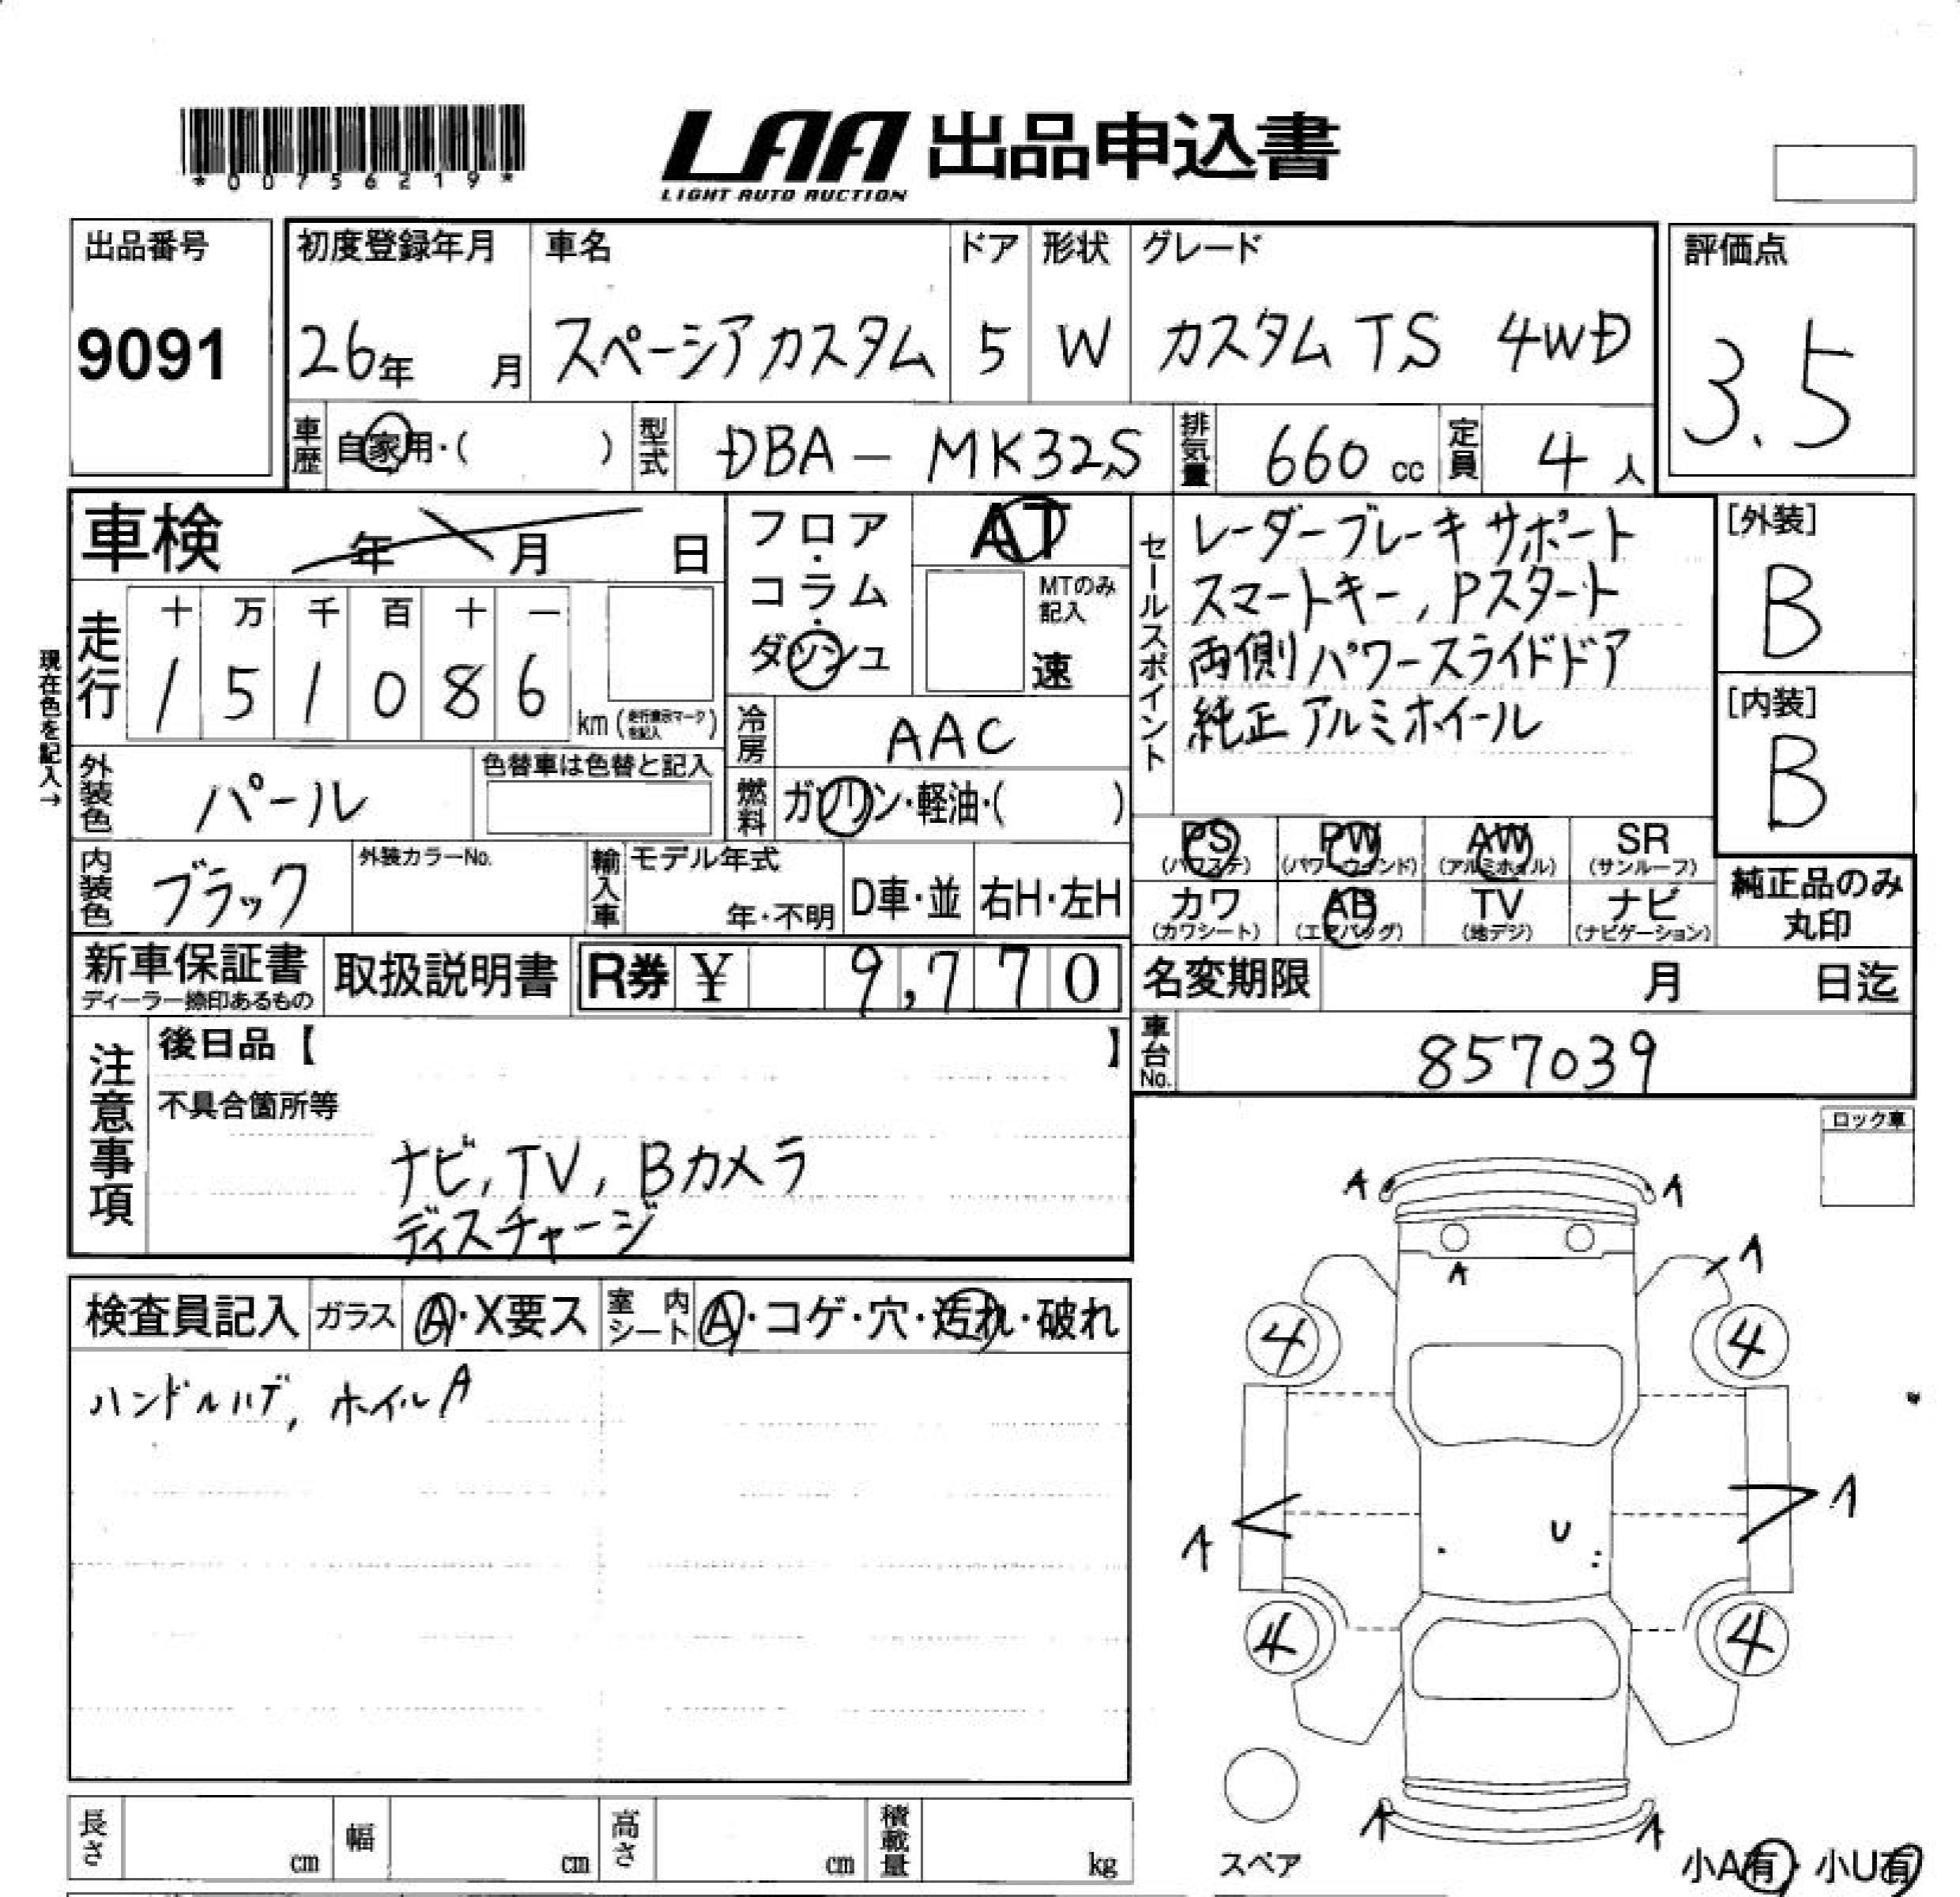 *00756219*
LAA 出品申込書
LIGHT AUTO AUCTION
出品番号
9091
初度登録年月
26年 月
車名
スペーシアカスタム
ドア
5
形状
W
グレード
カスタム TS 4WD
評価点
3.5
車歴 自家用・( )
型式 DBA － MK32S
排気量 660 cc
定員 4 人
車検 年 月 日
現在色を記入→
走行
十 万 千 百 十 一
1 5 1 0 8 6
km (走行表示マークを記入)
フロア・コラム・ダッシュ
AT
MTのみ記入
速
冷房 AAC
燃料 ガソリン・軽油・( )
セールスポイント
レーダーブレーキ サポート
スマートキー, Pスタート
両側パワースライドドア
純正 アルミホイール
[外装]
B
[内装]
B
外装色 パール
色替車は色替と記入
内装色 ブラック
外装カラーNo.
輸入車 モデル年式
年・不明
D車・並
右H・左H
PS (パワステ)
PW (パワーウィンド)
AW (アルミホイル)
SR (サンルーフ)
カワ (カワシート)
AB (エアバッグ)
TV (地デジ)
ナビ (ナビゲーション)
純正品のみ
丸印
新車保証書
ディーラー捺印あるもの
取扱説明書
R券 ¥ 9,770
名変期限 月 日迄
車台No. 857039
注意事項
後日品【 】
不具合箇所等
ナビ, TV, Bカメラ
ディスチャージ
ロック車
検査員記入
ガラス A・X要ス
室内シート A・コゲ・穴・汚れ・破れ
ハンドルハゲ, ホイルA
A A
A A
4 4
A A
U
4 4
A A
スペア
小A有・小U有
長さ cm
幅 cm
高さ cm
積載量 kg